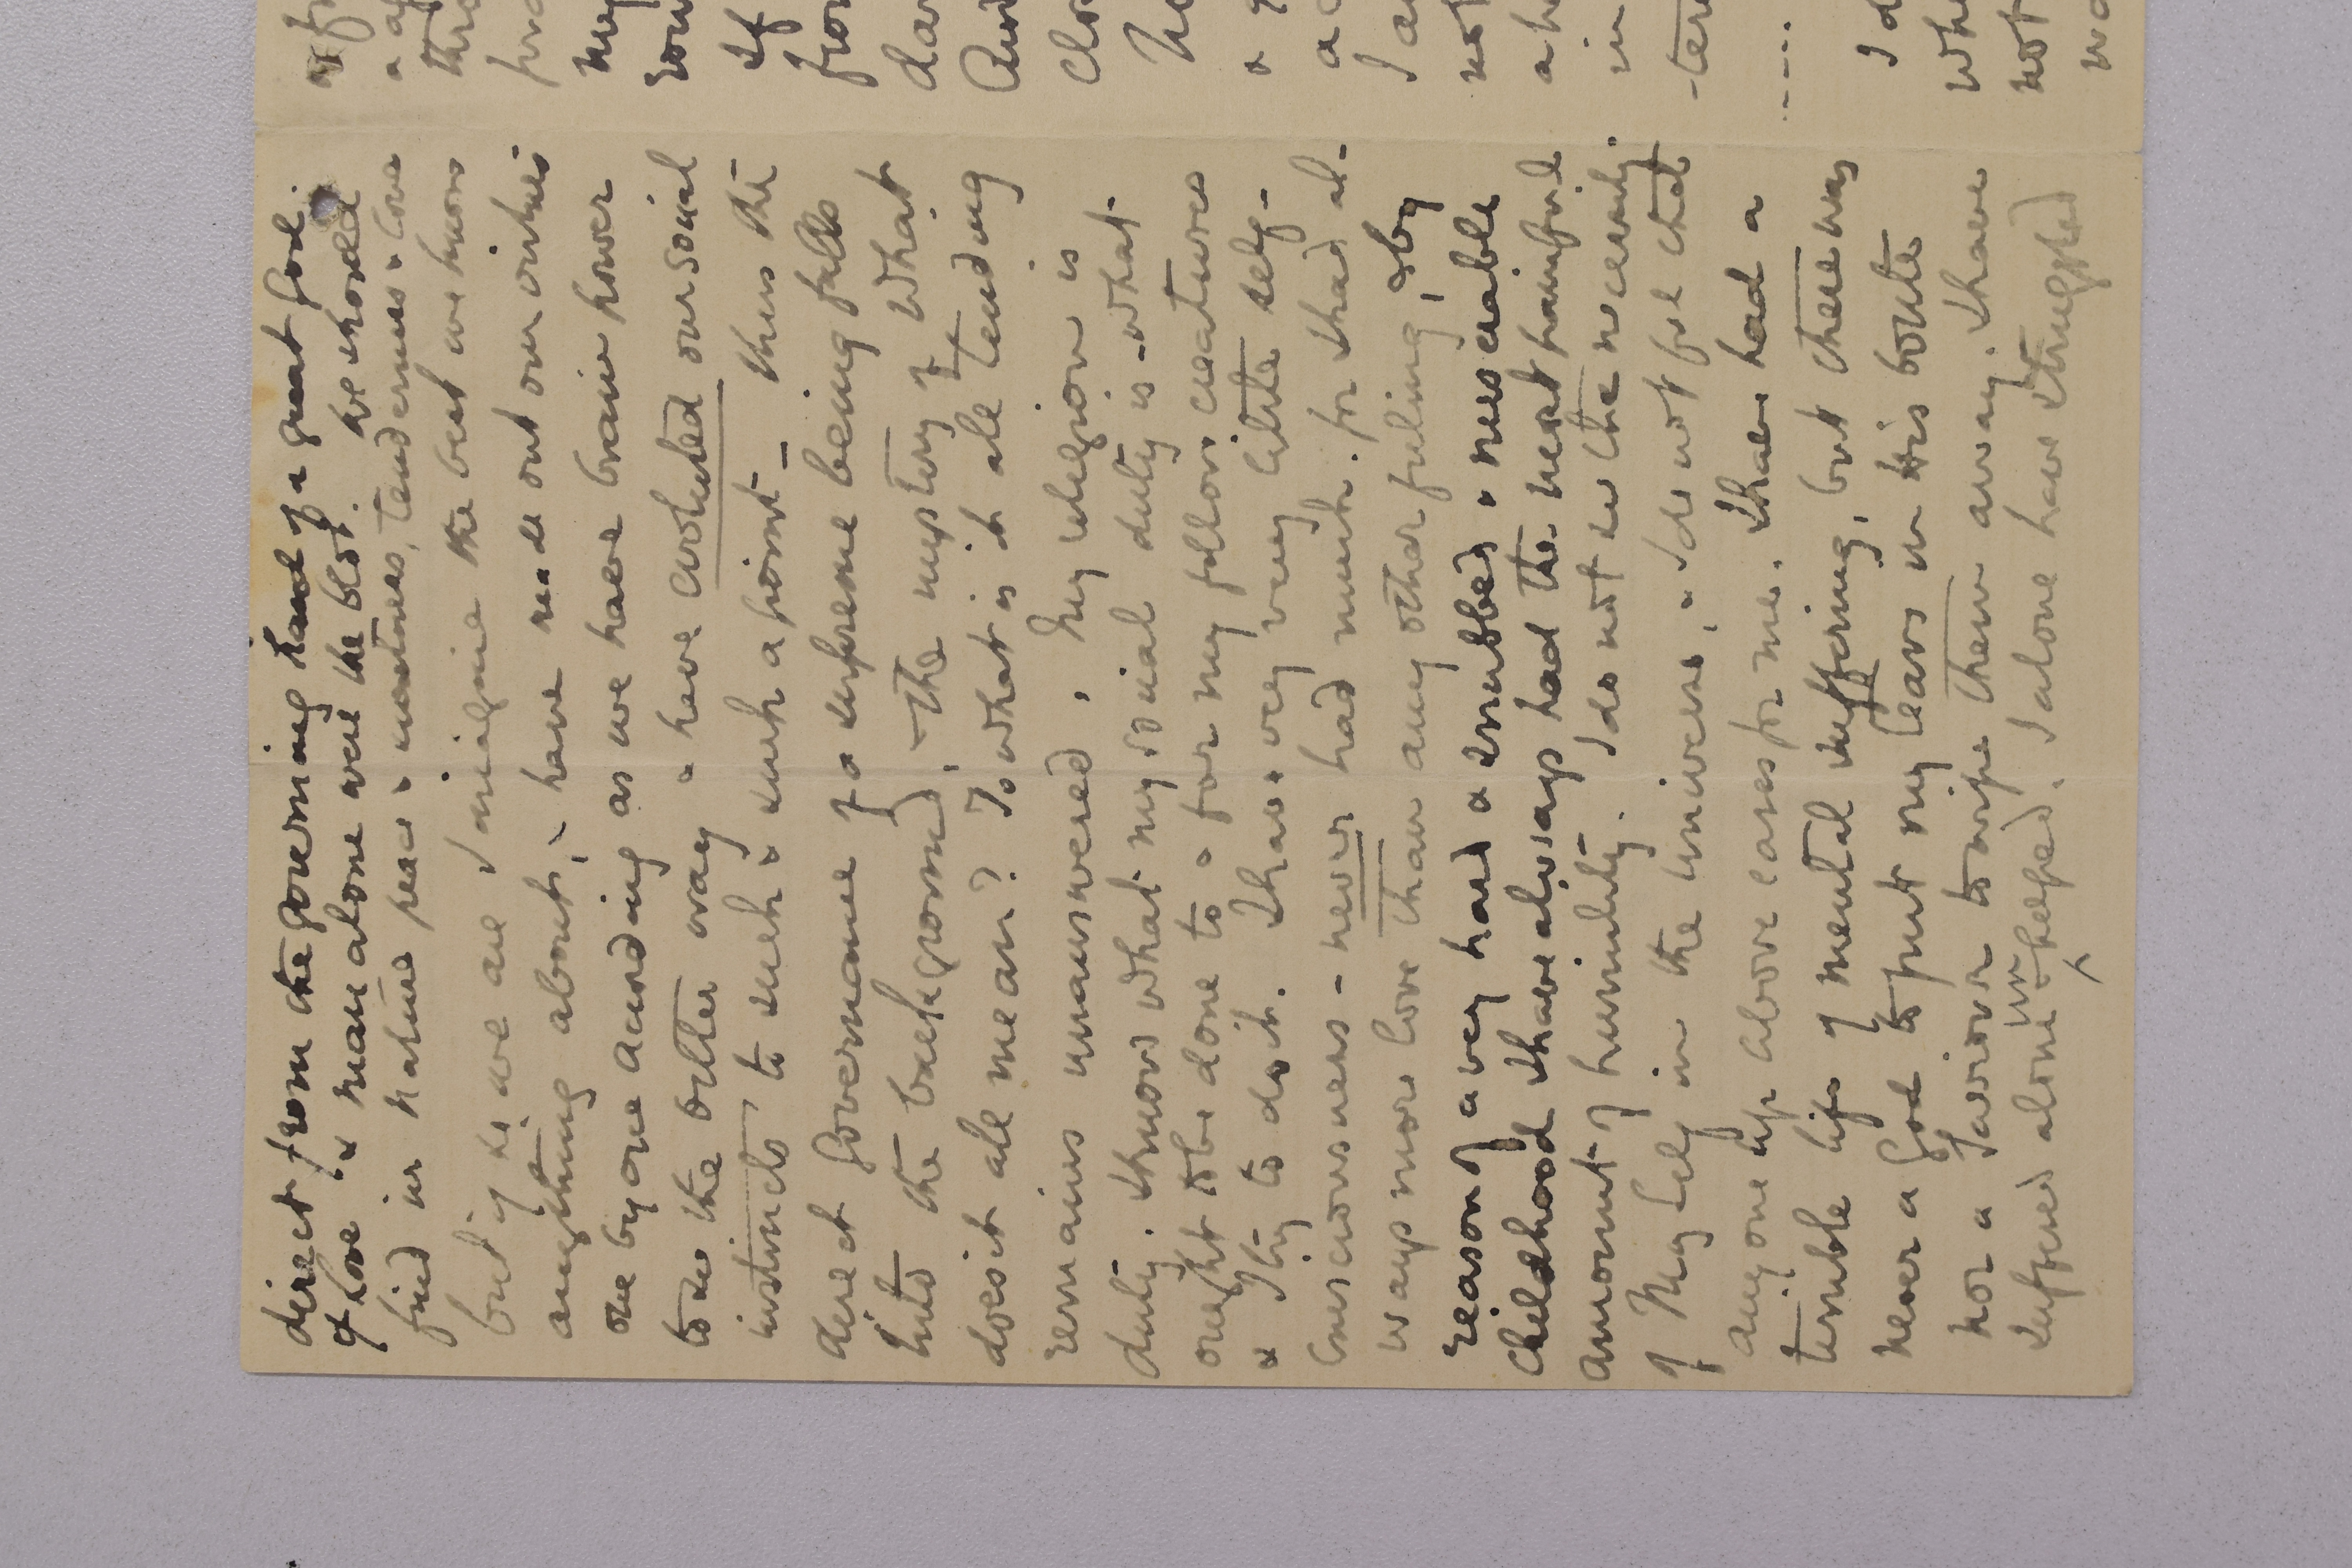 direct from the governing hand of a great God
of Love & man alone were the blot. We should
find in nature peace & sweetness, tenderness & love
but if so we are I imagine the best we know
anything about, & have made out our virtues
one by one according as we have brain power
to see the better way & have evoluted our social
instincts to such & such a point – thus the
direct Governance of a supreme being falls
into the background, – the mystery of what
does it all mean? To what is it all tending
remains unanswered, my religion is
duty. I know what my social duty is – what
ought to be done to & for my fellow creatures
& I try to do it. I have very very little self-
consciousness – never had much. for I had al-
ways more love than any other feeling, & by
reason of a very hard & snubbed & miserable
childhood I have always had the most painful
amount of humility. I do not see the necessity
of Myself in the Universe, & I do not feel that
any one up above cares for me. I have had a
terrible life of mental suffering, but there was
never a God to put my tears in His bottle
nor a Saviour to wipe them away. I have
suffered alone unhelped. I alone have struggled
if
a
thro
forc
my
soun
If
from
dar
And
Clo
No
& g
a c
I a
not
a h
in
-ten
....
I d
whe
not
wo